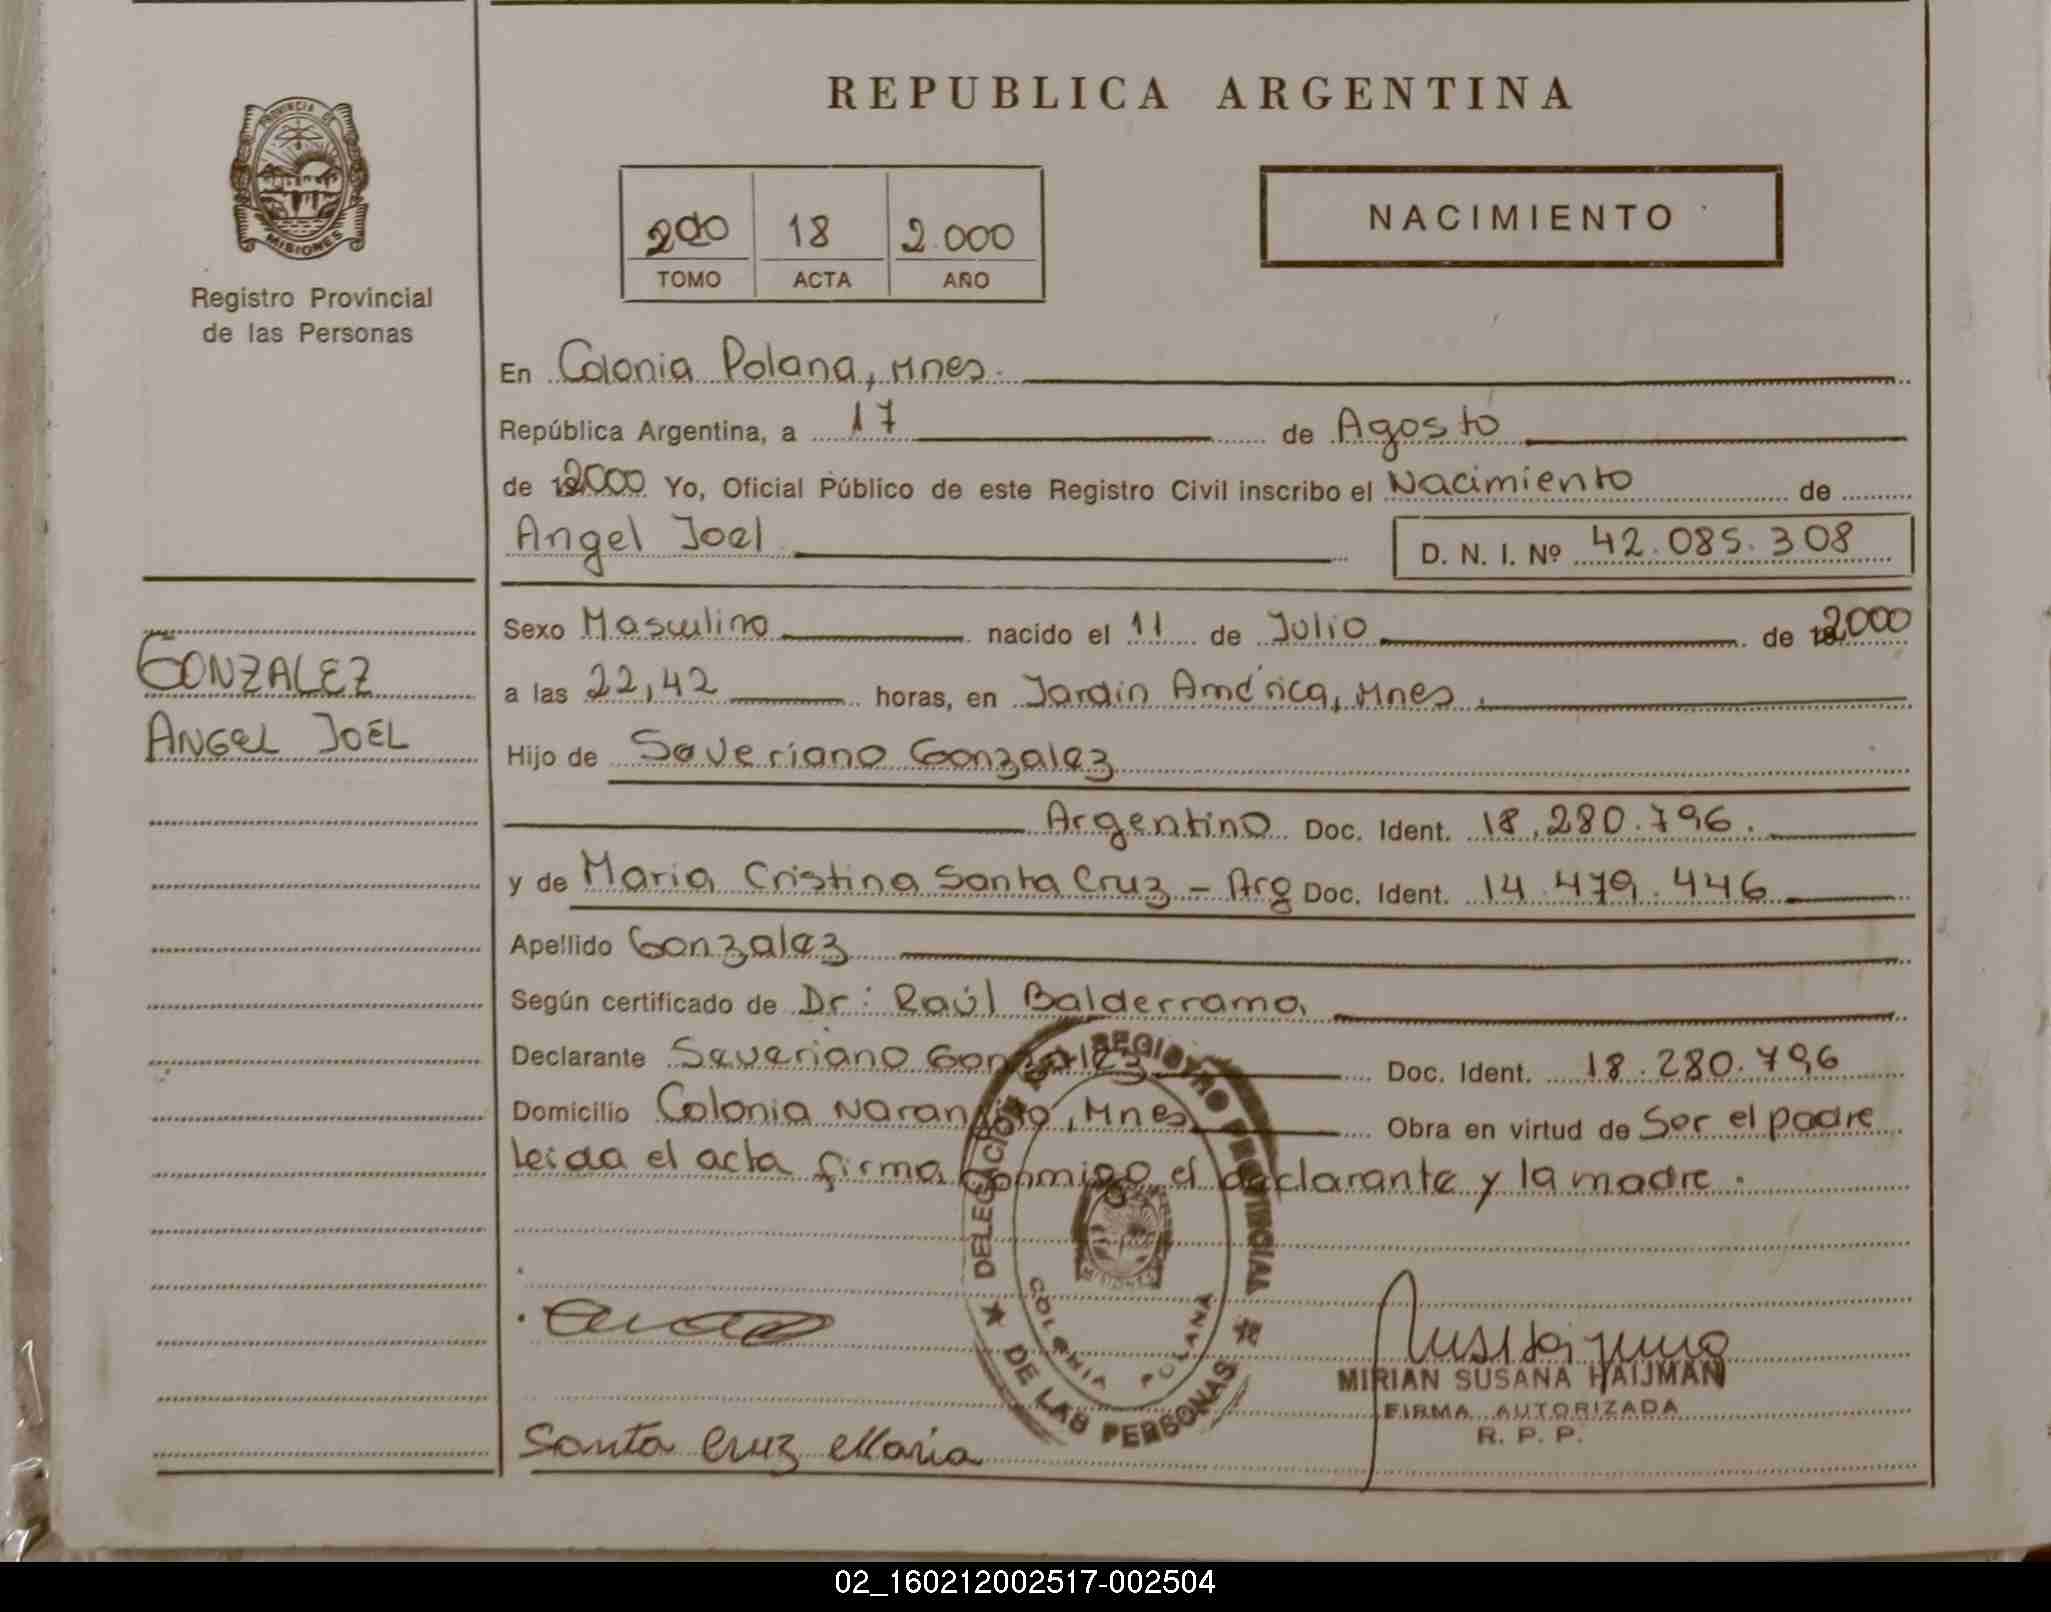 PROVINCIA DE
MISIONES
Registro Provincial
de las Personas
GONZALEZ
ANGEL JOEL
REPUBLICA ARGENTINA
2do 18 2.000
TOMO ACTA AÑO
NACIMIENTO
En Colonia Polana, Mnes.
República Argentina, a 17 de Agosto
de 2000 Yo, Oficial Público de este Registro Civil inscribo el Nacimiento de
Angel Joel D. N. I. Nº 42.085.308
Sexo Masculino nacido el 11 de Julio de 2000
a las 22,42 horas, en Jardin América, Mnes.
Hijo de Severiano Gonzalez
Argentino Doc. Ident. 18.280.796.
y de Maria Cristina Santa Cruz - Arg Doc. Ident. 14.479.446
Apellido Gonzalez
Según certificado de Dr: Raúl Balderrama
Declarante Severiano Gonzalez Doc. Ident. 18.280.796
Domicilio Colonia Naranjito, Mnes Obra en virtud de Ser el padre
Leida el acta firma conmigo el declarante y la madre.
DELEGACION DEL REGISTRO PROVINCIAL
DE LAS PERSONAS
MISIONES
COLONIA POLANA
MIRIAN SUSANA HAIJMAN
FIRMA AUTORIZADA
R. P. P.
Santa Cruz Maria
02_160212002517-002504